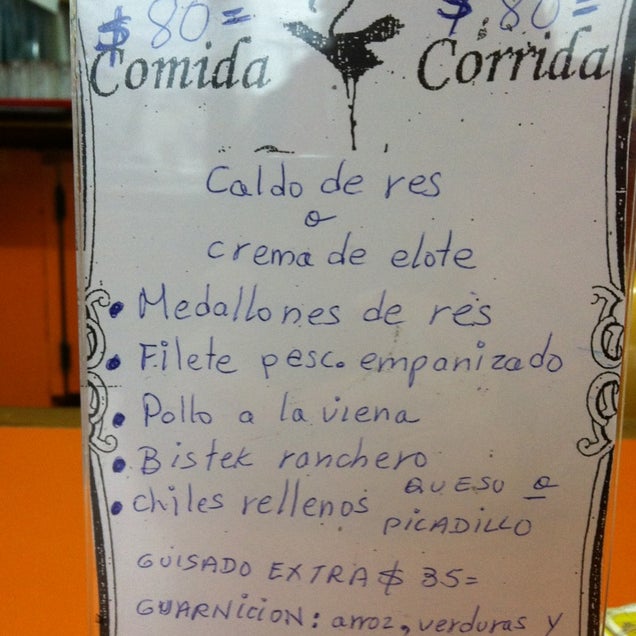 $ 80= $ 80=
Comida Corrida
Caldo de res
o
crema de elote
• Medallones de res
• Filete pesc. empanizado
• Pollo a la viena
• Bistek ranchero
• chiles rellenos QUESO o
PICADILLO
GUISADO EXTRA $ 35=
GUARNICION: arroz, verduras y